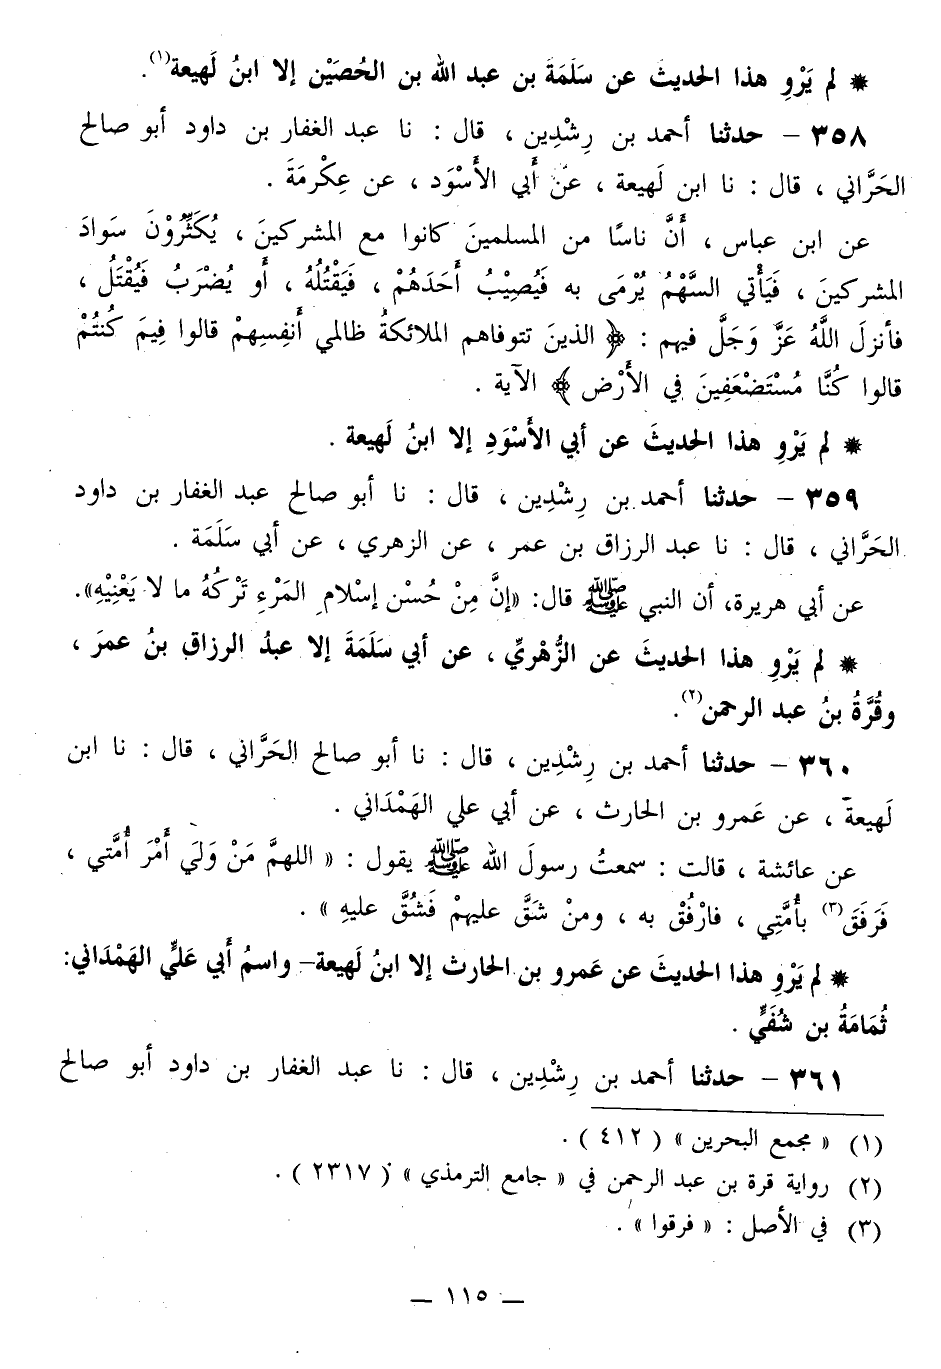 * لم يَرْوِ هذا الحديثَ عن سَلَمَةَ بن عبد الله بن الحُصَيْن إلا ابنُ لَهيعة(١).
٣٥٨ – حدثنا أحمد بن رِشْدِين ، قال : نا عبد الغفار بن داود أبو صالح
الحَرَّاني ، قال : نا ابن لَهيعة ، عن أَبي الأَسْوَد ، عن عِكْرمَةَ .
عن ابن عباس ، أَنَّ ناسًا من المسلمينَ كانوا مع المشركينَ ، يُكَثِّرُوْنَ سَوادَ
المشركينَ ، فَيَأْتي السَّهْمُ يُرْمَى به فَيُصِيْبُ أَحَدَهُمْ ، فَيَقْتُلُهُ ، أو يُضْرَبُ فَيُقْتَلُ ،
فأنزلَ اللَّهُ عَزَّ وَجَلَّ فيهم : ﴿ الذينَ تتوفاهم الملائكةُ ظالمي أَنفِسِهمْ قالوا فِيمَ كُنتُمْ
قالوا كُنَّا مُسْتَضْعَفِينَ في الأَرْض ﴾ الآية .
* لم يَرْوِ هذا الحديثَ عن أبي الأَسْوَدِ إلا ابنُ لَهيعة .
٣٥٩ – حدثنا أحمد بن رِشْدِين ، قال : نا أبو صالح عبد الغفار بن داود
الحَرَّاني ، قال : نا عبد الرزاق بن عمر ، عن الزهري ، عن أبي سَلَمَة .
عن أبي هريرة، أن النبي ﷺ قال: «إنَّ مِنْ حُسْن إسْلامِ المَرْءِ تَرْكُهُ ما لا يَعْنِيْهِ».
* لم يَرْوِ هذا الحديثَ عن الزُّهْريِّ ، عن أبي سَلَمَةَ إلا عبدُ الرزاق بنُ عمرَ ،
وقُرَّةُ بنُ عبد الرحمن(٢).
٣٦٠ – حدثنا أحمد بن رِشْدِين ، قال : نا أبو صالح الحَرَّاني ، قال : نا ابن
لَهيعة ، عن عَمرو بن الحارث ، عن أبي علي الهَمْدَاني .
عن عائشة ، قالت : سمعتُ رسولَ الله ﷺ يقول : « اللهمَّ مَنْ وَلَي أَمْرَ أُمَّتي ،
فَرَفَقَ(٣) بأُمَّتِي ، فارْفُقْ به ، ومنْ شَقَّ عليهمْ فَشُقَّ عليهِ » .
* لم يَرْوِ هذا الحديثَ عن عَمرو بن الحارث إلا ابنُ لَهيعة– واسمُ أَبي عَليٍّ الهَمْدَاني:
ثُمَامَةُ بن شُفَيٍّ .
٣٦١ – حدثنا أحمد بن رِشْدِين ، قال : نا عبد الغفار بن داود أبو صالح
(١) « مجمع البحرين » ( ٤١٢ ) .
(٢) رواية قرة بن عبد الرحمن في « جامع الترمذي » ( ٢٣١٧ ) .
(٣) في الأصل : « فرقوا » .
– ١١٥ –